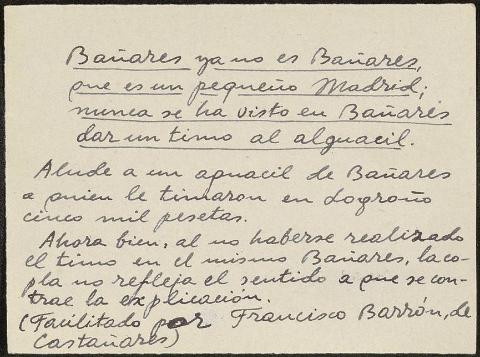 Bañares ya no es Bañares,
que es un pequeño Madrid;
nunca se ha visto en Bañares
dar un timo al alguacil.
Alude a un aguacil de Bañares
a quien le timaron en Logroño
cinco mil pesetas.
Ahora bien, al no haberse realizado
el timo en el mismo Bañares, la co-
pla no refleja el sentido a que se con-
trae la explicación.
(Facilitado por Francisco Barrón, de
Castañares)